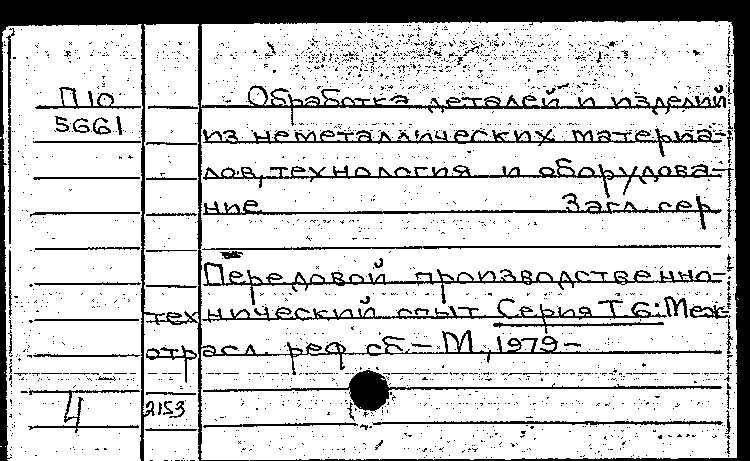 П10 Обработка деталей и изделий
5661 из неметаллических материа-
лов, технология и оборудова-
ние Загл. сер.
Передовой производственно-
технический опыт Серия Т6: Меж-
отрасл. реф. сб – М, 1979 –
4 2153